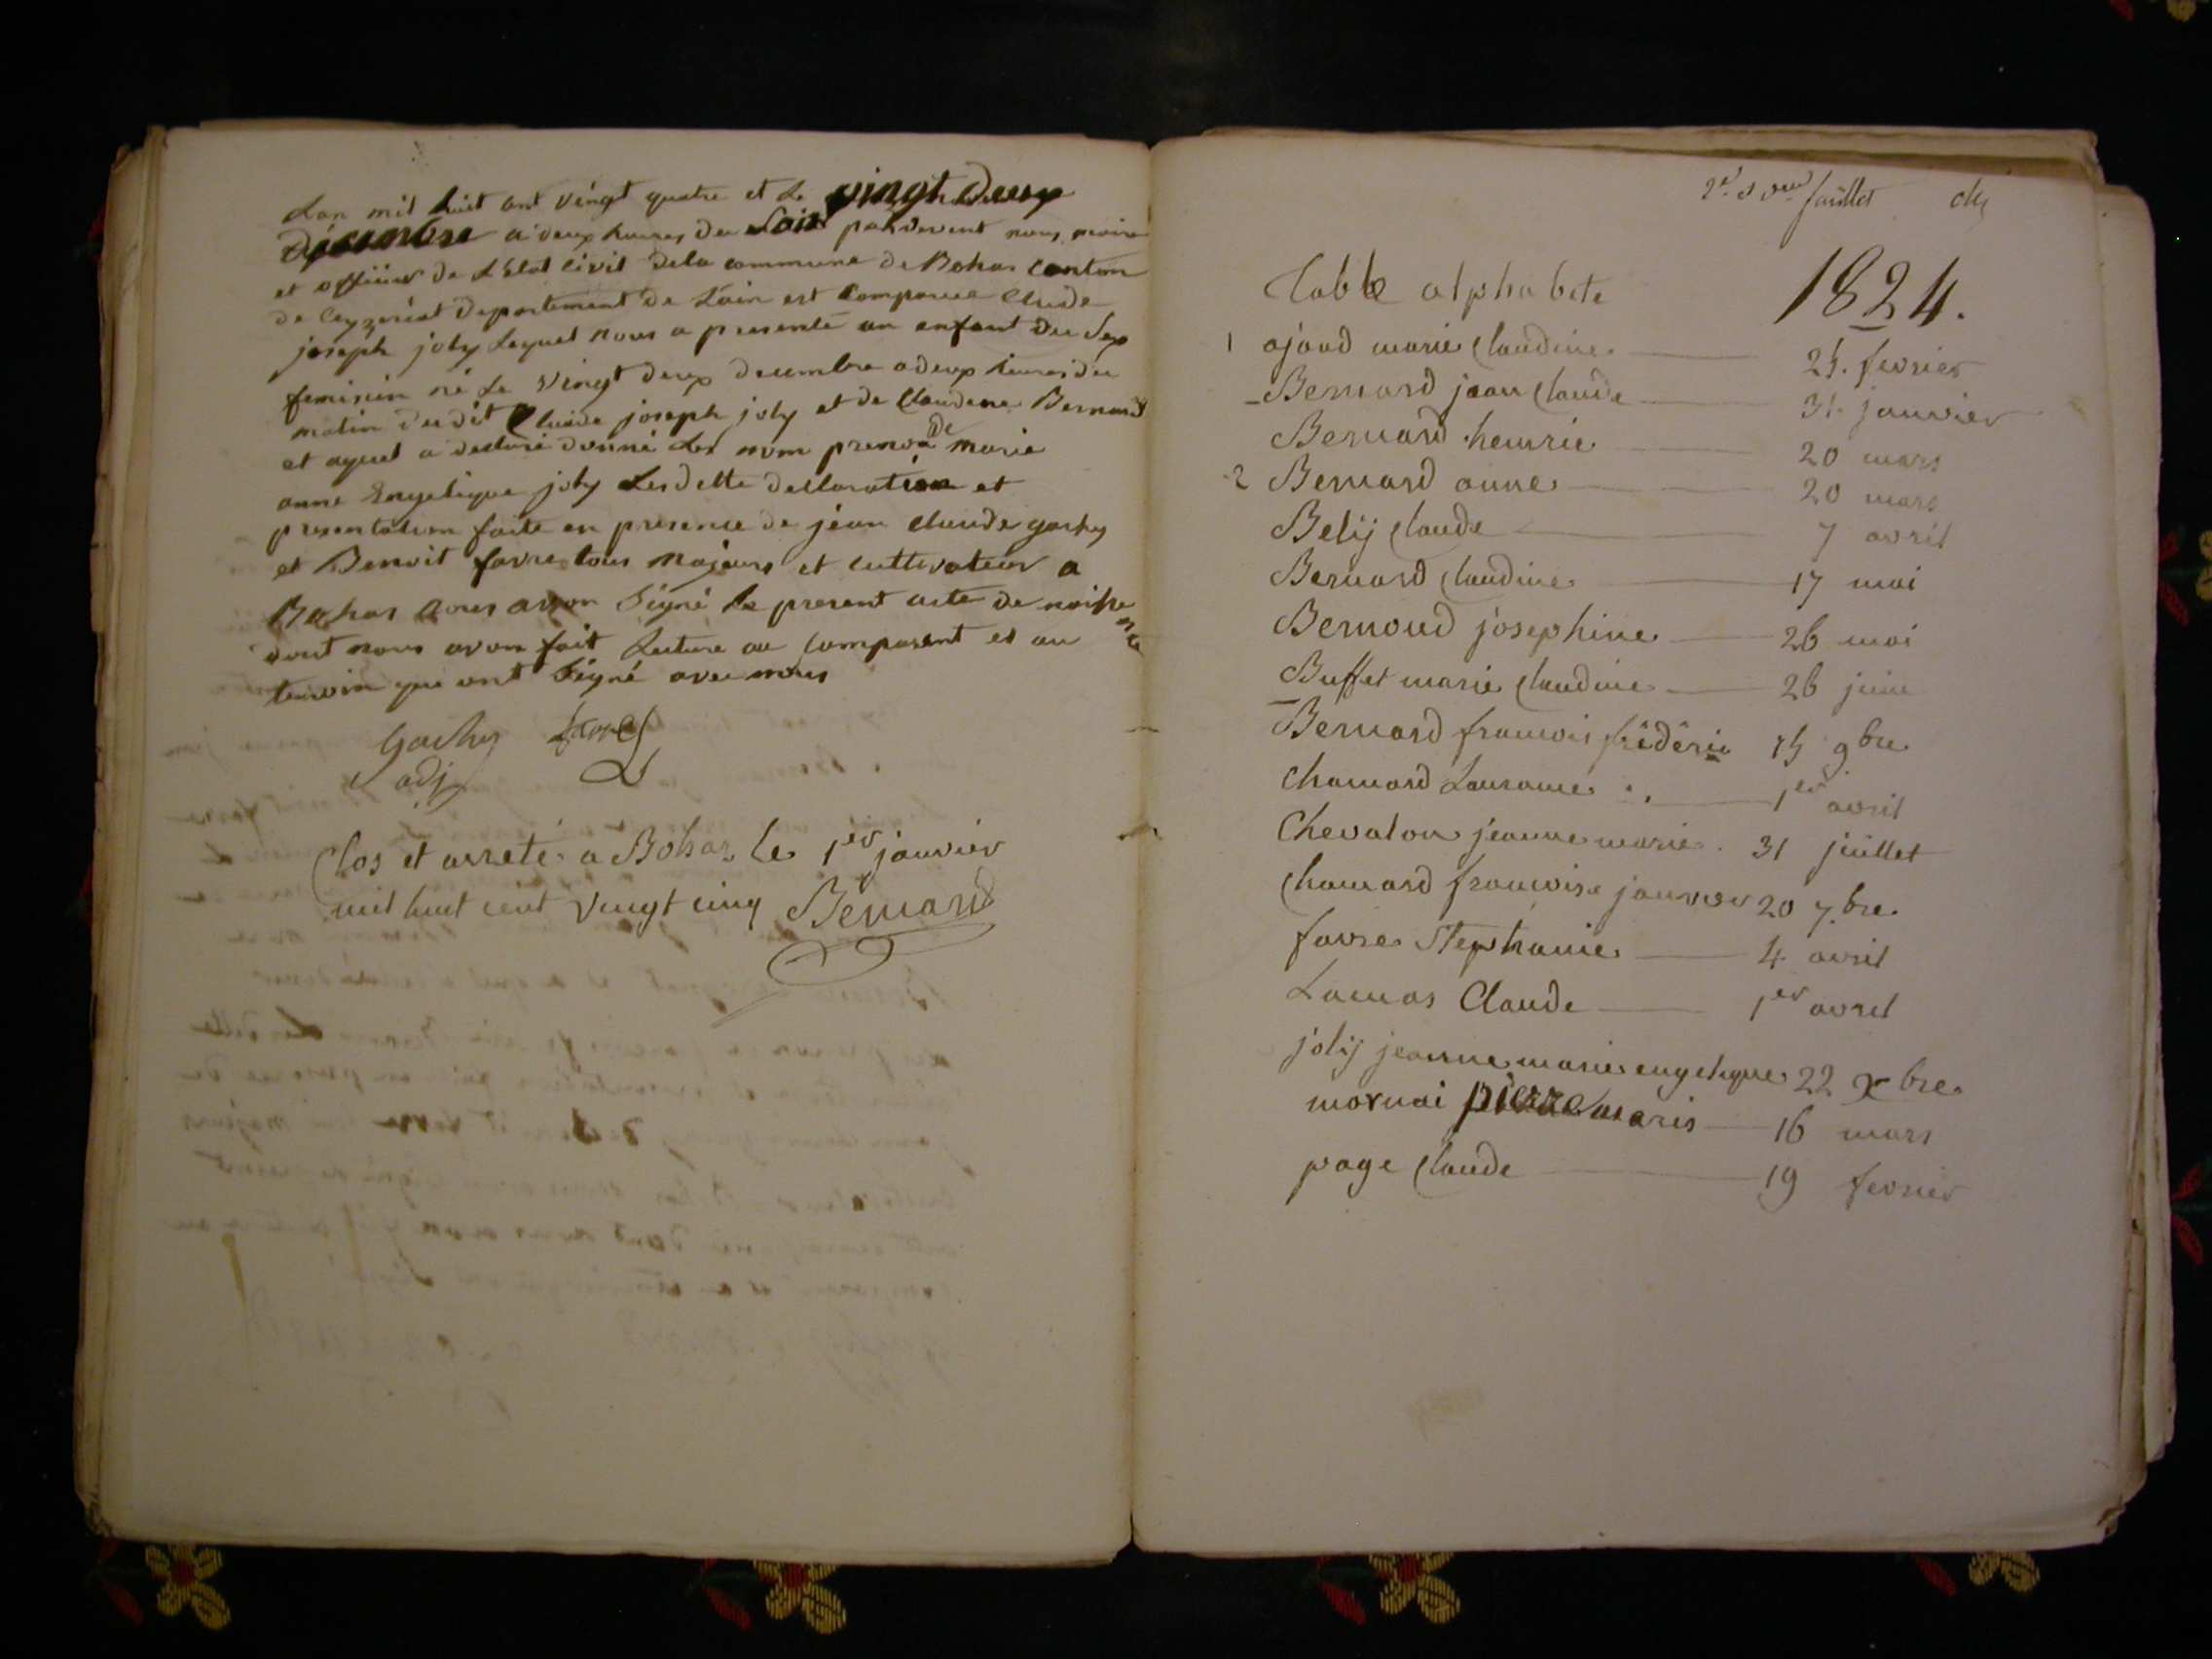 Lan mil huit ant vingt quatre et Le vingt Deux
Decembre a deux heures du Soir pardevent nous maire
et officier de L'Etat Civil dela commune de Bohas Canton
de Ceyzeriat Departement de L'ain est Comparue Claude
joseph joly Lequel nous a presenté un enfant du Sex
feminin né Le Vingt deux decembre a deux heures du
matin du dit Claude joseph joly et de Claudene Bernard
et aquel a declaré donné Les nom prenon de marie
anne Engelique joly Lesdette dellaration et
presentation faite en presence de jéan claude gachy
et Benoit favre tous Majeurs et cultivateur a
Bohas avons Signé Le present acte de naissance
dont nous avon fait Lecture au Comparent et au
temoin qui ont Signé avec nous
Gachy favre
adj
Clos et arreté a Bohas le 1er janvier
mil huit cent Vingt cinq Bernard
2e feuillet
Table alphabete 1824.
1 ajoud marie Claudine 25. fevrier
Bernard jean Claude 31. janvier
Bernard henrie 20 mars
2 Bernard anne 20 mars
Belij Claude 7 avril
Bernard Claudine 17 mai
Bernoud josephine 26 mai
Buffet marie Claudine 26 juin
Bernard francois frédéric 15 9bre
Chanard 1er avril
Chevalon jeanne marie. 31 juillet
Chanard francoise 20 7.bre
favre Stephanie 4 avril
Lamas Claude 1er avril
jolij jeanne marie engelique 22 xbre
mornai pierre maris 16 mars
page Claude 19 fevrier